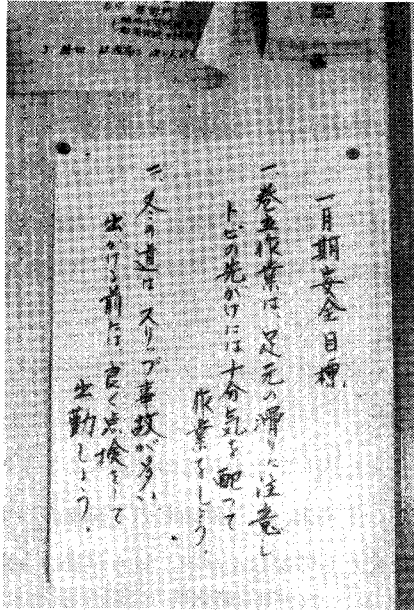 一月期安全目標
一、巻立作業は、足元の滑りに注意し
トビの先がけには十分気を配って
作業をしよう。
二、冬の道は、スリップ事故が多い
出かける前には良く点検をして
出勤しよう。